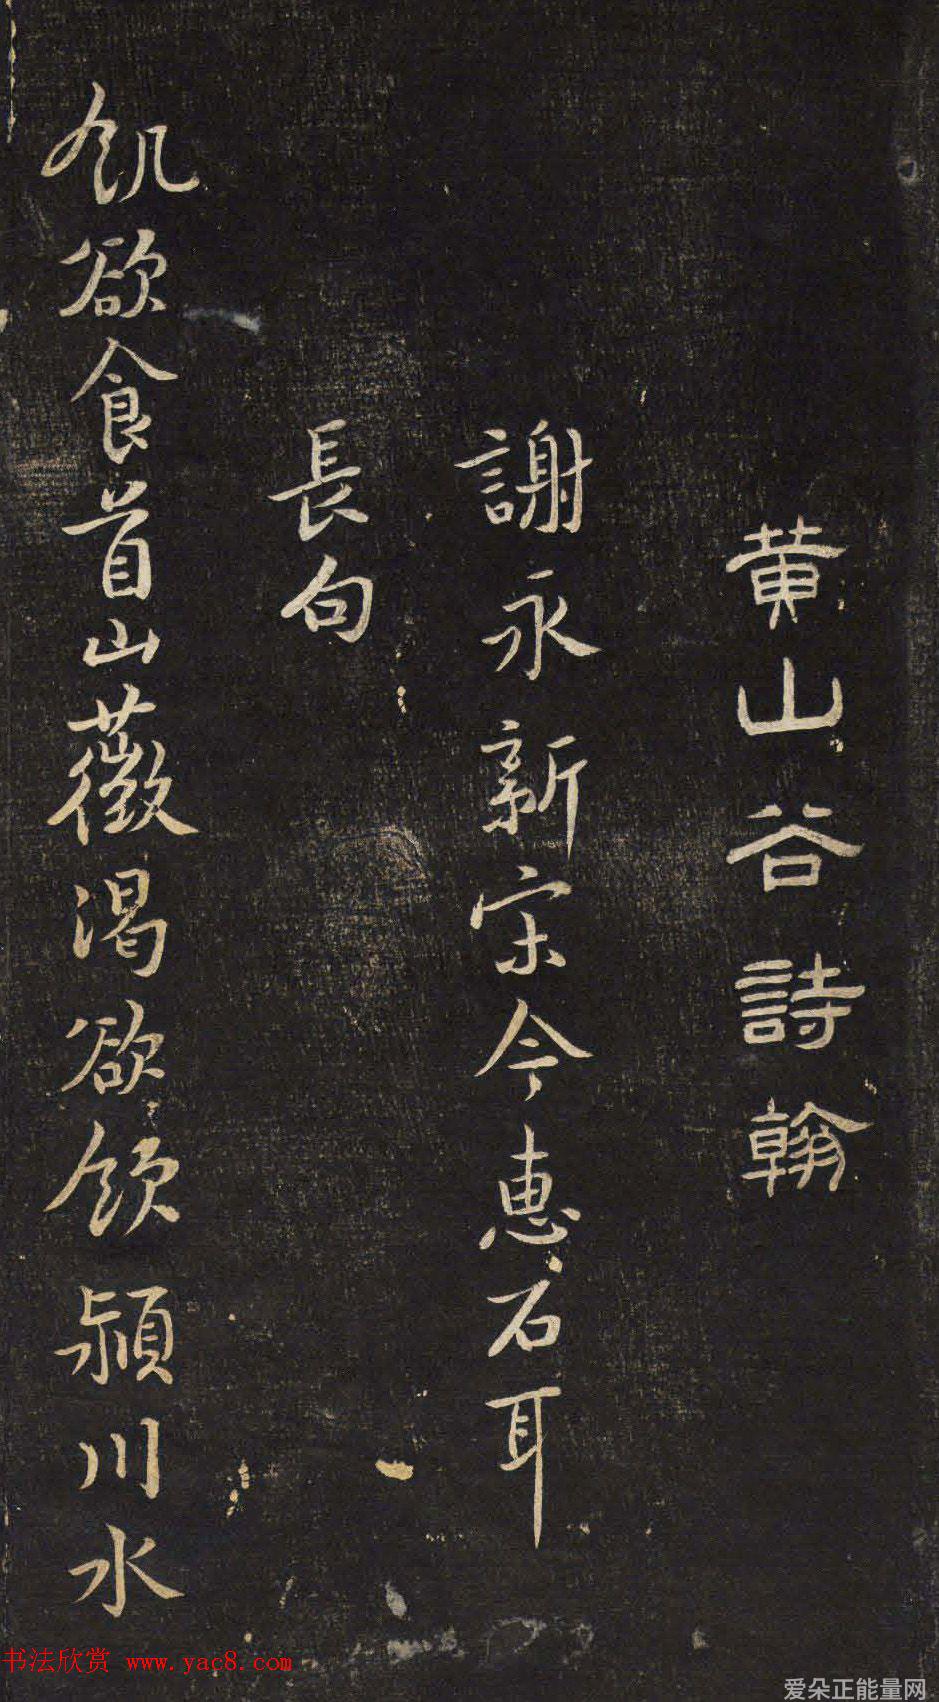 黄山谷詩翰
謝永新宋令惠石耳
長句
飢欲食首山薇渴欲飲潁川水
书法欣赏 www.yac8.com
爱朵正能量网